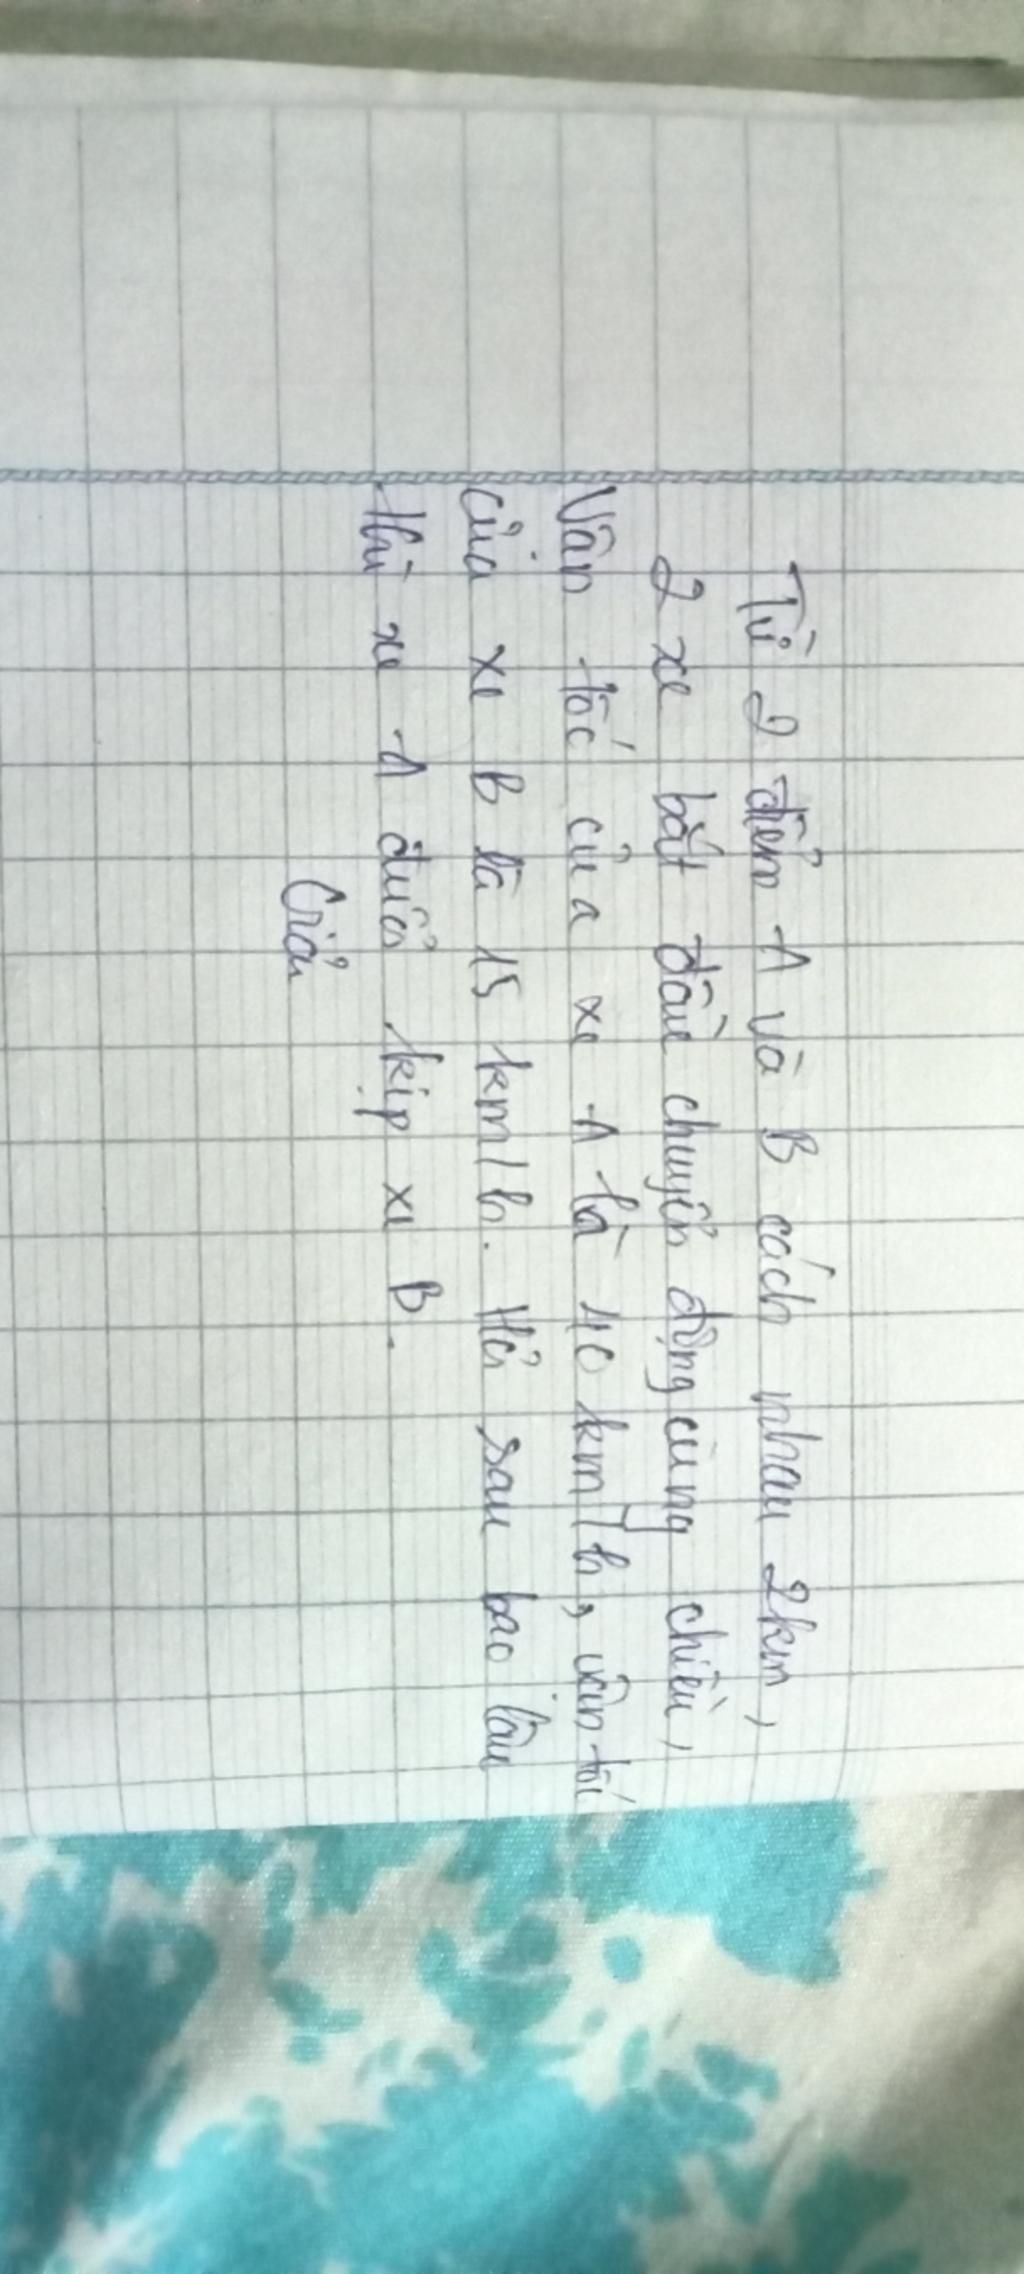 Từ 2 điểm A và B cách nhau 2km,
2 xe bắt đầu chuyển động cùng chiều,
Vận tốc của xe A là 40 km/h, vận tốc
của xe B là 15 km/h. Hỏi sau bao lâu
thì xe A đuổi kịp xe B.
Giải